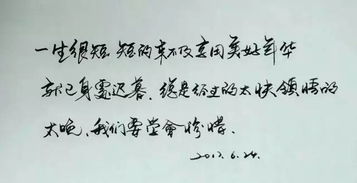 一生很短，短的来不及享用美好年华
就已身处迟暮、总是经过的太快领悟的
太晚，我们要学会珍惜、
2017.6.24.